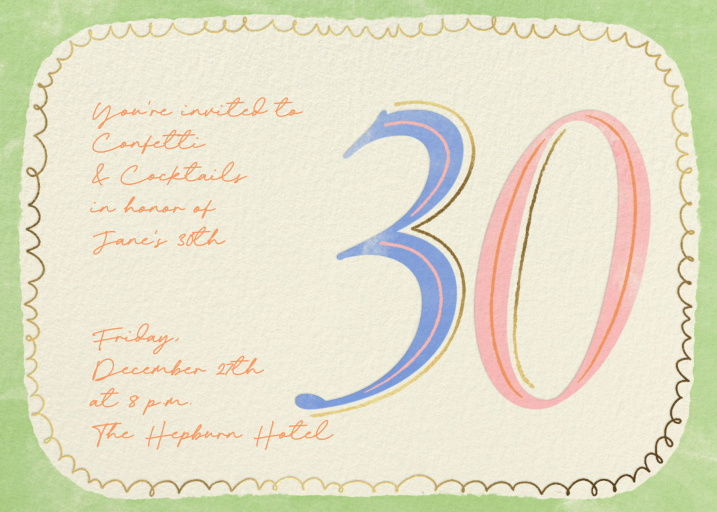 You're invited to
Confetti
& Cocktails
in honor of
Jane's 30th
Friday,
December 27th
at 8 p.m.
The Hepburn Hotel
30